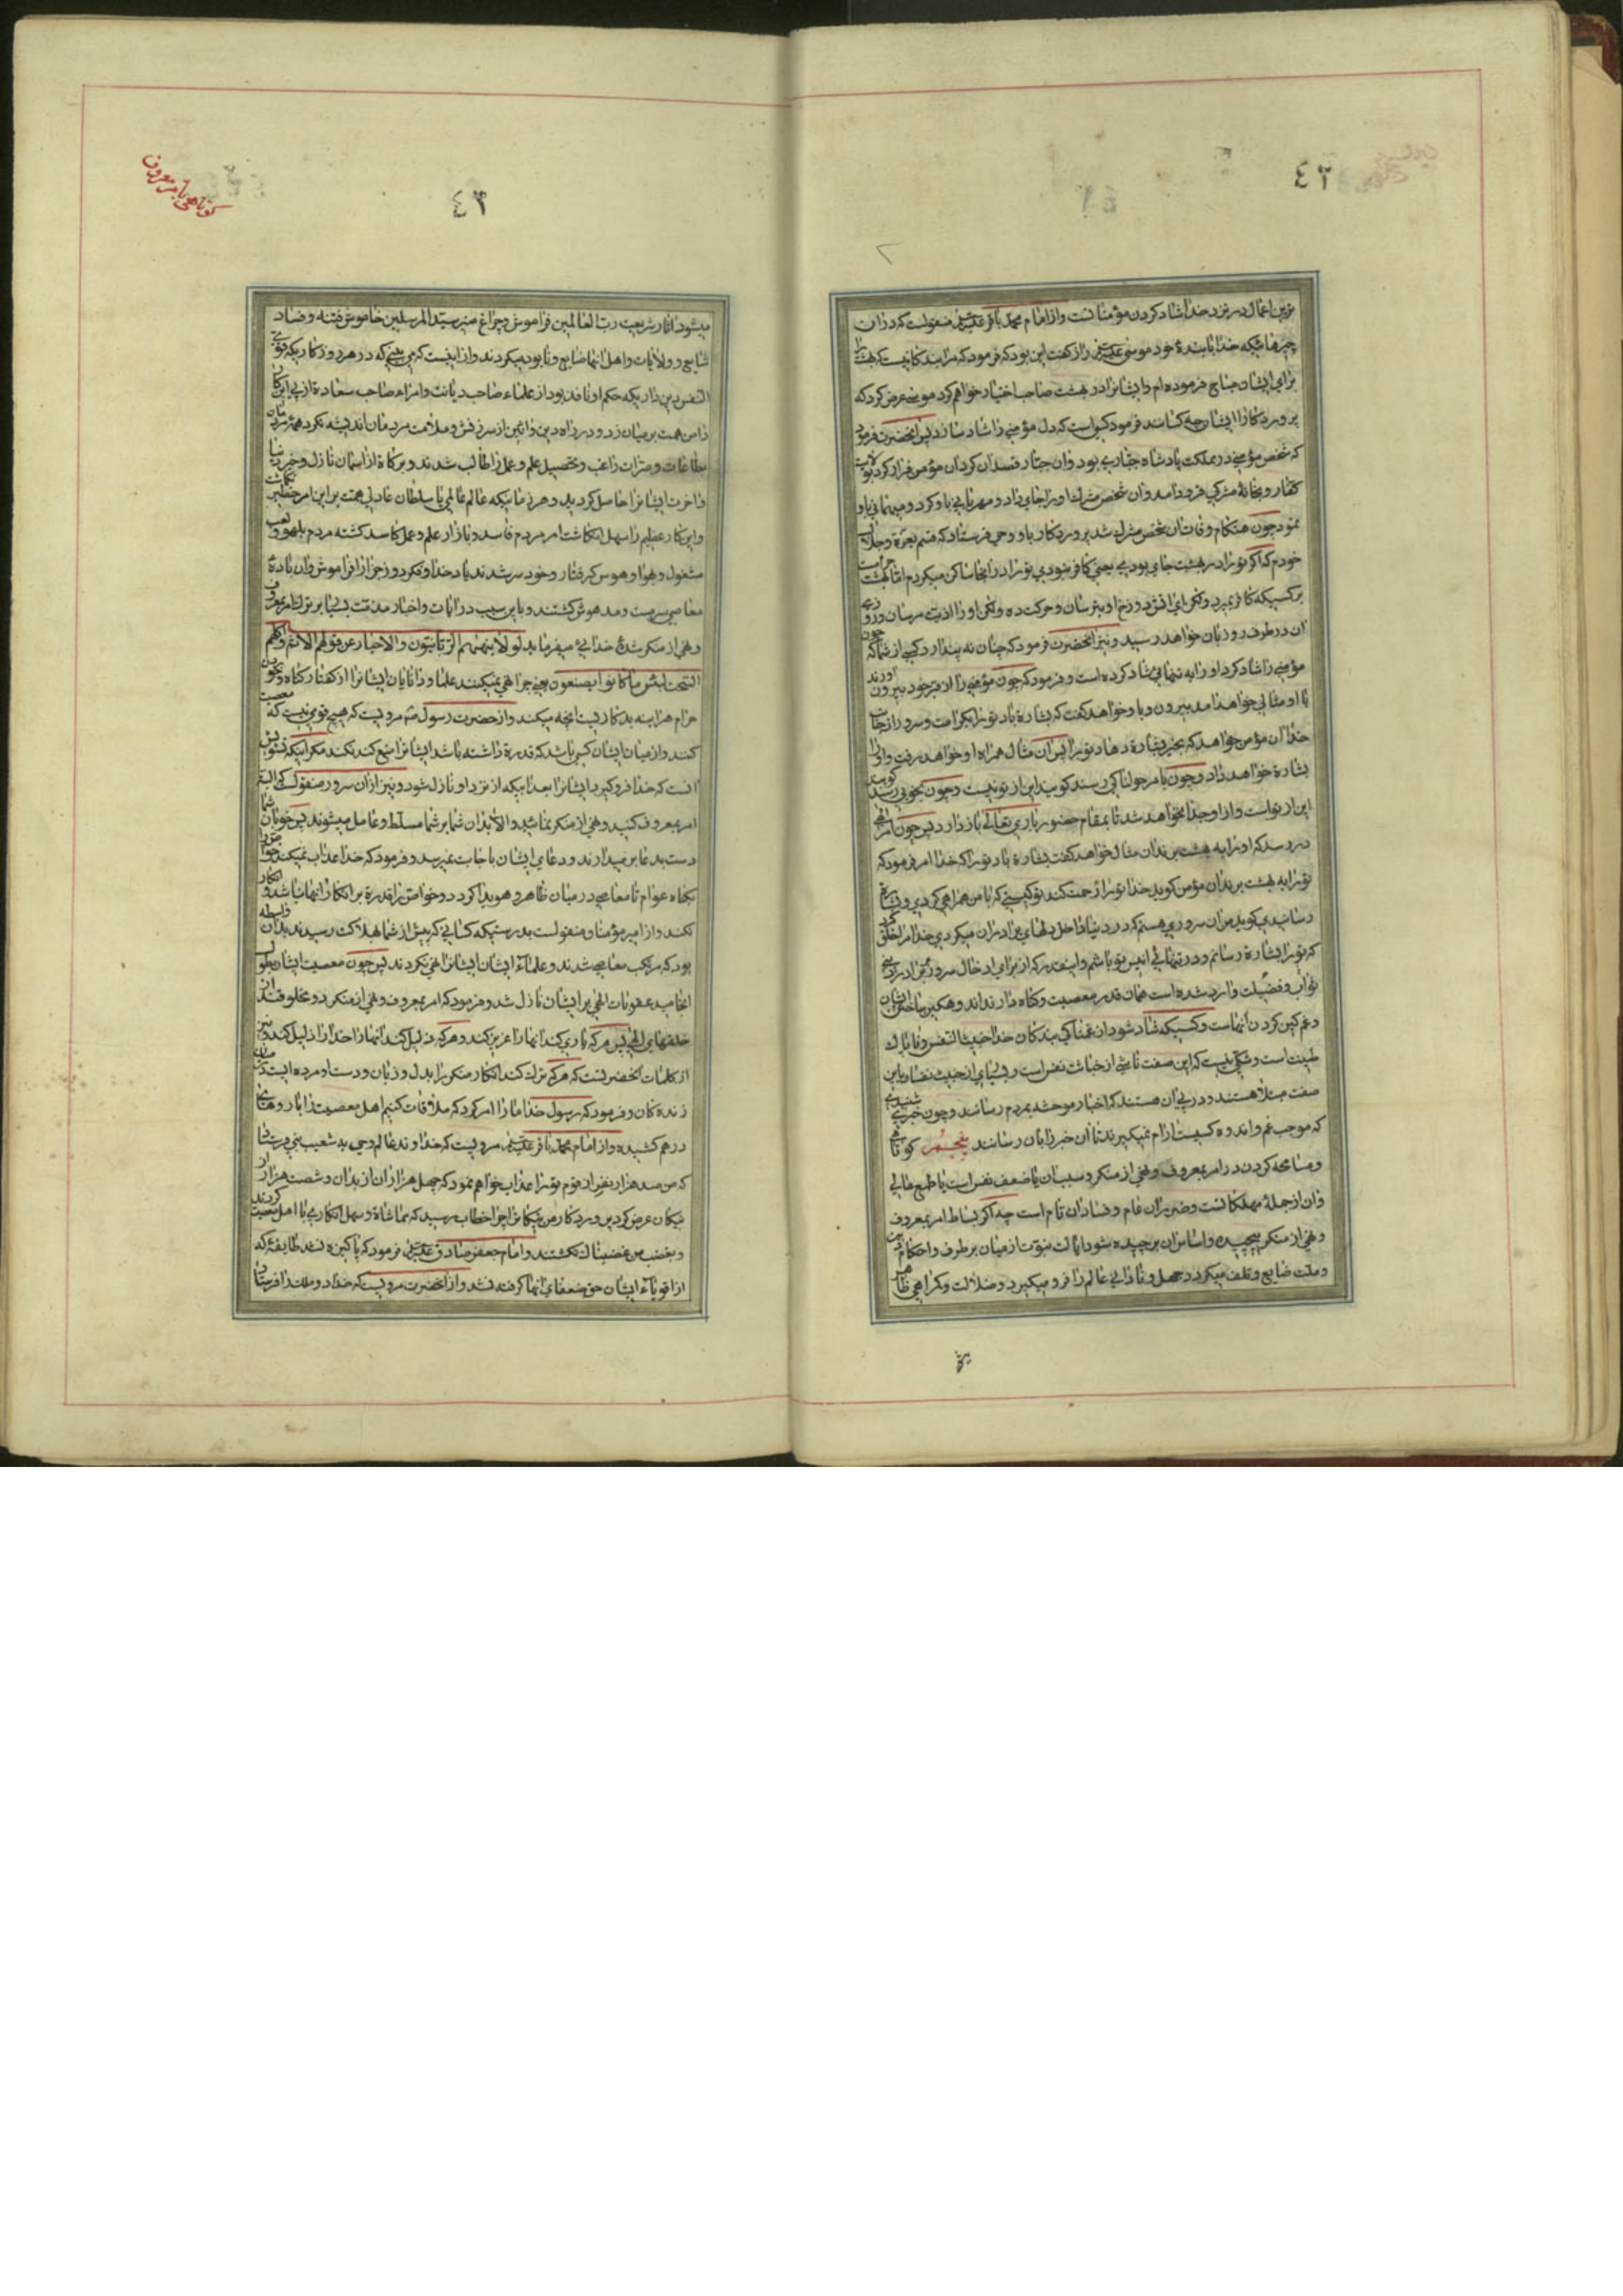 ٤٢
ترین اعمال در نزد خدا شاد کردن مؤمنانست و از امام محمد باقر علیه السلام منقولست که در ان
چیزهائیکه خدا با بندهٔ خود موسی علیه السلام راز گفت این بود که فرمود که مرا بندگانیست که بهشت را
برای ایشان مباح فرموده ام و ایشانرا در بهشت صاحب اختیار خواهم کرد موسی عرض کرد که
پروردگارا ایشان چه کسانند فرمود کسیست که دل مؤمنی را شاد سازد پس انحضرت فرمود
که شخص مؤمنی در مملکت پادشاه جباری بود و ان جبار قصد ان کرد ان مؤمن فرار کرد بولایت
کفار و بخانهٔ مشرکی فرود امد و ان شخص مشرک او را جای داد و مهربانی با و کرد و میهمانی با و
نمود چون هنگام وفات ان شخص مشرک شد پروردگار با و وحی فرستاد که قسم بعزة و جلال
خودم که اگر تو را در بهشت جای بودی یعنی کافر نبودی تو را در انجا ساکن میکردم اما بهشت حرامست
بر کسیکه کافر بمیرد ولکن ای اتش دوزخ او را بترسان و حرکت ده ولکن او را اذیت مرسان و روزی
ان در طرف روز بان خواهد رسید و نیز انحضرت فرمود که چنان نه پندارد کسی از شما که چون
مؤمنی را شاد کرد او را به تنهائی شاد کرده است و فرمود که چون مؤمنی را از قبر خود بیرون اورند
با او مثالی خواهد امد بیرون و با و خواهد گفت که بشارة باد تو را بکرامت و سرور از جانب
خدا ان مؤمن خواهد که بخیر بشارة دهاد تو را پس ان مثال همراه او خواهد رفت و او را
بشارة خواهد داد و چون بامر هولناکی رسند گوید این از تو نیست و چون بخوبی رسد گوید
این از تو است و از او جدا نخواهد شد تا بمقام حضور باری تعالی باز دارد پس چون امر الهی
در رسد که او را به بهشت برند ان مثال خواهد گفت بشارة باد تو را که خدا امر فرمود که
تو را به بهشت برند ان مؤمن گوید خدا تو را رحمت کند تو کیستی که با من همراهی کردی و بشارتم
رسانیدی گوید من ان سروری هستم که در دنیا داخل دلهای برادران میکردی خدا مرا خلق کرد
که تو را بشارة رسانم و در تنهائی انیس تو باشم و اینقدر که از برای ادخال سرور در برادر دینی
ثواب و فضیلت وارد شده است همان قدر معصیت و گناه دارند اندوهگین ساختن ایشان
و غمگین کردن انهاست و کسیکه شاد شود از غمناکی بندگان خدا خبیث النفس و ناپاک
طینت است و شکی نیست که این صفت ناشی از خباثت نفس است و بسیای از خبیث نفسان باین
صفت مبتلا هستند و در پی ان هستند که اخبار موحشه بمردم رسانند و چون خبری شنیدند
که موجب غم و اندوه کسیست ارام نمیگیرند تا ان خبر را بان رسانند پنجم کوتاهی
و مسامحه کردن در امر بمعروف و نهی از منکر و سبب ان یا ضعف نفس است یا طمع مالی
و ان از جملهٔ مهلکاتست و ضرر ان عام و فساد ان تام است چه اگر بساط امر بمعروف
و نهی از منکر پیچیده و اساس ان برچیده شود ایات نبوت از میان بر طرف و احکام دین
و ملت ضایع و تلف میگردد جهل و نادانی عالم را فرو میگیرد و ضلالت و گمراهی ظاهر
کوتاهی بامر معروف
٤٣
میشود اثار شریعت رب العالمین فراموش و چراغ منیر سید المرسلین خاموش فتنه و فساد
شایع و ولایات و اهل انها ضایع و نابود میگردند و از اینست که می بینی که در هر دوزگاریکه قوی
النفس دین داریکه حکم او نافذ بود از علماء صاحب دیانت و امراء صاحب سعادة از پی اینکار
دامن همت بر میان زد و در راه دین و ائین از سرزنش و ملامت مردمان اندیشه نکرد همهٔ مردمان
بطاعات و مبرات راغب و تحصیل علم و عمل را طالب شدند و برکاة از اسمان نازل و خیر دنیا
و اخرت ایشانرا حاصل گردید و هر زمانیکه عالم عاملی یا سلطان عادلی همت بر این امر خطیر نگماشت
و این کار عظیم را سهل انگاشت امر مردم فاسد و بازار علم و عمل کاسد گشته مردم بلهو و لعب
مشغول و بهوا و هوس گرفتار و خود سر شدند یاد خدا و فکر دوز جزا را فراموش و از بادهٔ
معاصی سرمست و مدهوش گشتند و باین سبب در ایات و اخبار مذمت بسیار بر ترک امر بمعروف
و نهی از منکر شده خدای میفرماید لولا ینهیهم الربانیون و الاحبار عن قولهم الاثم و اکلهم
السحت لبئس ما کانوا یصنعون یعنی چرا نهی نمیکنند علما و دانایان ایشانرا از گفتار گناه و خوردن
حرام هراینه بد کاریست انچه میکنند و از حضرت رسول ص مرویست که هیچ قومی نیست که معصیت
کنند و از میان ایشان کسی باشد که قدرة داشته باشد ایشانرا منع کند نکند مگر اینکه نزدیک
انست که خدا فرو گیرد ایشانرا بعذابیکه از نزد او نازل شود و نیز از ان سرور منقولست که البته
امر بمعروف کنید و نهی از منکر نمائید و الا بدان شما بر شما مسلط و عامل میشوند پس خوبان شما
دست بدعا بر میدارند و دعای ایشان باجابت نمیرسد و فرمود که خدا عذاب نمیکند خواص را
بگناه عوام تا معاصی در میان ظاهر و هویدا گردد و خواص را قدرة بر انکار انها باشد و انکار
نکنند و از امیر مؤمنان منقولست بدرستیکه کسانی که پیش از شما بهلاکت رسیدند بدان واسطه
بود که مرتکب معاصی شدند و علماء ایشان ایشانرا نهی نکردند پس چون معصیت ایشان بطول
انجامید عقوبات الهی بر ایشان نازل شد و فرمود که امر بمعروف و نهی از منکر دو مخلوقند از
خلقهای الهی پس هر که یاری کند انها را عزیز کند و هر که ذلیل کند انها را خدا او را ذلیل کند و نیز
از کلمات انحضرتست که هر کس ترک کند انکار منکر را بدل و زبان و دست او مرده ایست میان
زنده گان و فرمود که رسول خدا ما را امر کرد که ملاقات کنیم اهل معصیت را با روهای
در هم کشیده و از امام محمد باقر علیه السلام مرویست که خداوند عالم وحی به شعیب نبی فرستاد
که من صد هزار نفر از قوم تو را عذاب خواهم نمود که چهل هزار ان از بدان و شصت هزار از
نیکان عرض کرد پروردگار من نیکانرا چرا خطاب رسید که مماشاة و سهل انگاری با اهل معصیت کردند
و بغضب من غضبناک نگشتند و امام جعفر صادق علیه السلام فرمود که پاکیزه نشد طایفهٔ که
از اقویاء ایشان حق ضعفای انها گرفته نشد و از انحضرت مرویست که خدا دو ملک را فرستاد